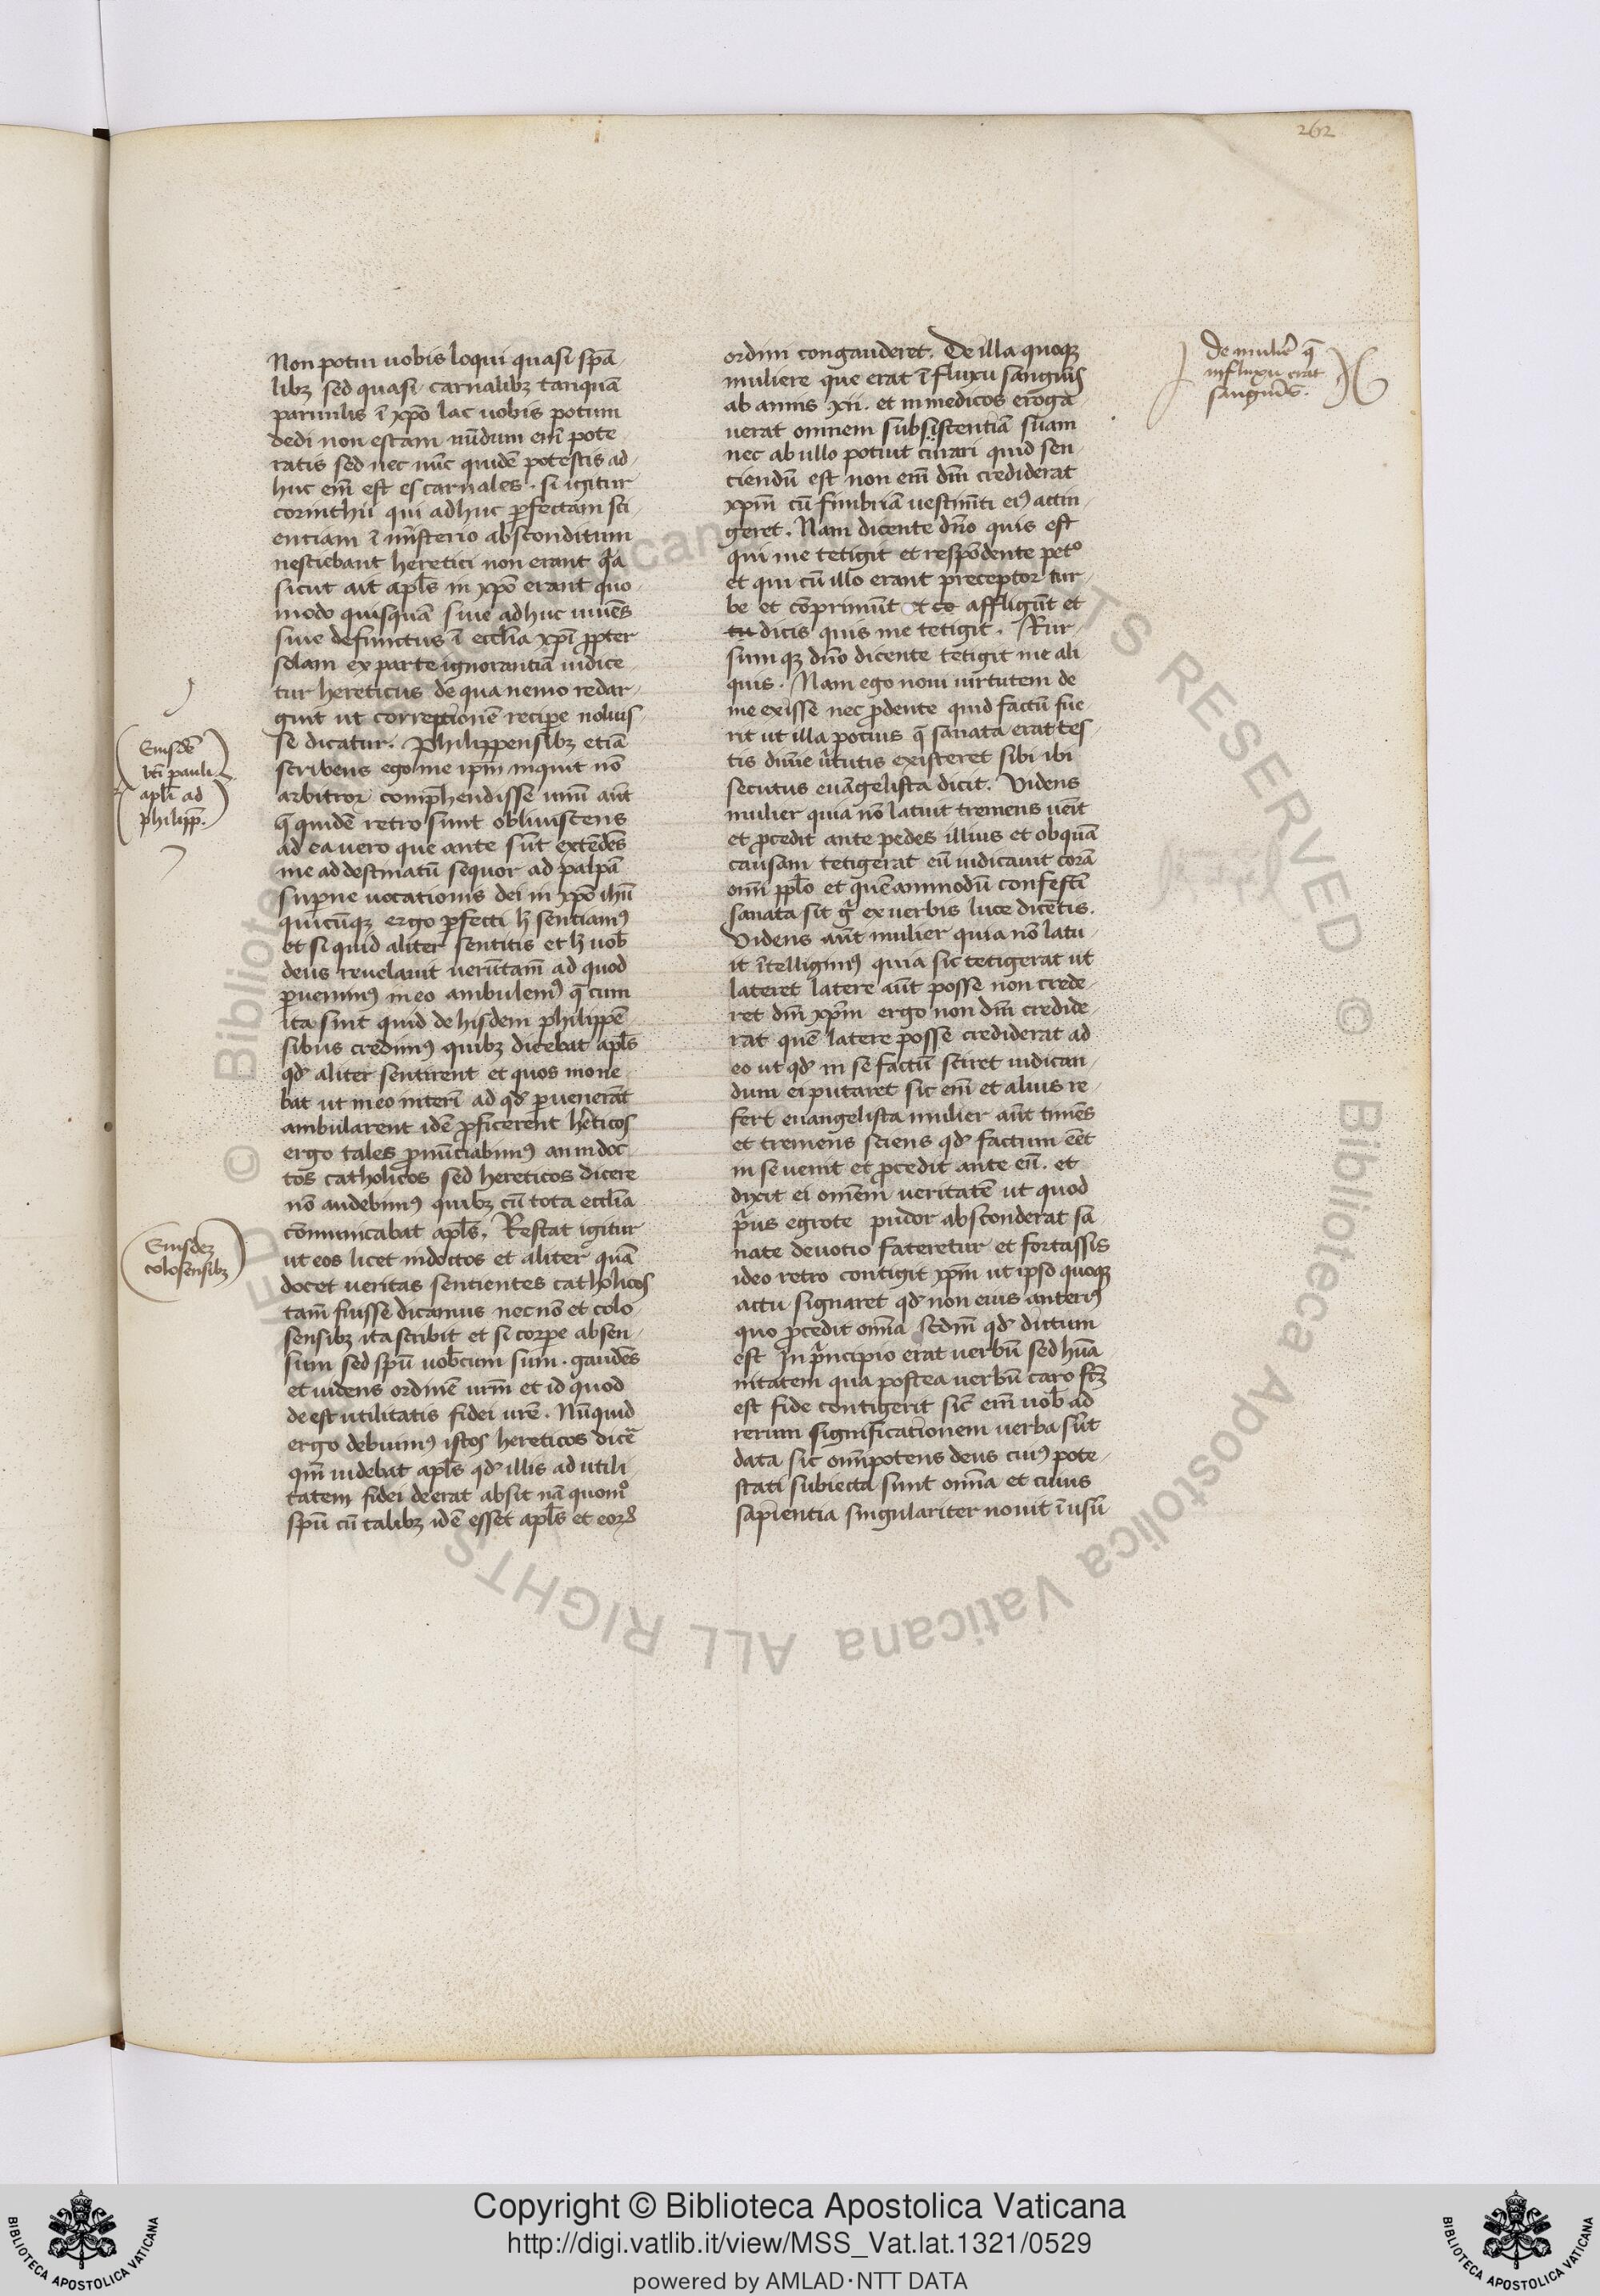 262
Non potui uobis loqui quasi sp̄a
libꝫ sed quasi carnalibꝫ tanquā
paruulis ī xp̄o lac uobis potum
dedi non escam nūdum em̄ pote
ratis sed nec nūc quidē potestis ad
huc em̄ est es carnales. si igitur
corinthii qui adhuc ꝑfectam sci
entiam ī mīsterio absconditum
nesciebant heretici non erant q̄a
sicut ait apl̄s in xp̄o erant quo
modo quisquā siue adhuc uiuēs
siue defunctus ī eccl̄ia xp̄i ꝓpter
solam ex parte ignorantiā iudice
tur hereticus de qua nemo redar
guit ut correptionē recipe noluis
se dicatur. Philippensibꝫ etiā
scribens ego me ip̄m inquit nō
arbitror comp̄hendisse unū aūt
q̄ quidē retro sunt obliuiscens
ad ea uero que ante sūt extēdēs
me ad destinatū sequor ad palpā
supne uocationis dei in xp̄o ihū
quicūqꝫ ergo ꝑfecti h̄ sentiamꝰ
et si quid aliter sentitis et h̄ uob̄
deus reuelauit uerūtam̄ ad quod
ꝑuenimꝰ in eo ambulemꝰ q̄ cum
ita sint quid de hisdem philippē
sibus credimꝰ quibꝫ dicebat apl̄s
qd̄ aliter sentirent et quos mone
bat ut in eo interī ad qd̄ ꝑuenerāt
ambularent idē ꝓficerent hēticos
ergo tales ꝓnūciabimꝰ an indoc
tos catholicos sed hereticos dicere
nō audebimꝰ quibꝫ cū tota eccl̄ia
cōmunicabat apl̄s. Restat igitur
ut eos licet indoctos et aliter quā
docet ueritas sentientes catholicos
tam̄ fuisse dicamus necnō et colo
sensibꝫ ita scribit et si corpe absen
sum sed spū uob̄cum sum. gaudēs
et uidens ordinē urm̄ et id quod
deest utilitatis fidei urē. Nūquid
ergo debuimꝰ istos hereticos dicē
qm̄ uidebat apl̄s qd̄ illis ad utili
tatem fidei deerat absit nā quomo
spū cū talibꝫ idē esset apl̄s et eoꝝ
Eiusdē
bt̄i pauli
apl̄i ad
philipp̄.
Eiusdeꝫ
colosensibꝫ
ordini congauderet. De illa quoqꝫ
muliere que erat ī fluxu sanguīs
ab annis xii. et in medicos eroga
uerat omnem subsistentiā suam
nec ab ullo potuit curari quid sen
tiendū est non em̄ dm̄ crediderat
xp̄m cū fimbriā uestimēti eiꝰ attin
geret. Nam dicente dn̄o quis est
qui me tetigit et respōdente peto
et qui cū illo erant preceptor tur
be et cōprimūt et te affligūt et
tu dicis quis me tetigit. Rur
sum qꝫ dn̄o dicente tetigit me ali
quis. Nam ego noui uirtutem de
me exisse nec ꝓdente quid factū fue
rit ut illa potius q̄ sanata erat tes
tis diuīe u̇tutis existeret sibi ibi
secutus euāgelista dicit. Videns
mulier quia nō latuit tremens ueīt
et ꝓcedit ante pedes illius et ob quā
causam tetigerat eū iudicauit corā
om̄i ppl̄o et quēammodū confestī
sanata sit gr̄ ex uerbis luce dicētis.
Videns aūt mulier quia nō latu
it ītelligimꝰ quia sic tetigerat ut
lateret latere aūt posse non crede
ret dm̄ xp̄m ergo non dm̄ credide
rat quē latere posse crediderat ad
eo ut qd̄ in se factū sciret iudican
dum ei putaret sic em̄ et alius re
fert euangelista mulier aūt timēs
et tremens sciens qd̄ factum eēt
in se uenit et ꝓcedit ante eū. et
dixit ei omēm ueritatē ut quod
pͥus egrote pudor absconderat sa
nate deuotio fateretur et fortassis
ideo retro contigit xp̄m ut ipso quoqꝫ
actu signaret qd̄ non eius anteriꝰ
quo ꝓcedit om̄ia scd̄m qd̄ dictum
est In pͥncipio erat uerbū sed hūa
nitatem qua postea uerbū caro fc̄ꝫ
est fide contigerit sic̄ em̄ uob̄ ad
rerum significationem uerba sūt
data sic om̄ipotens deus cuiꝰ pote
stati subiecta sunt om̄ia et cuius
sapientia singulariter nouit ī usū
De muliē q̄
in fluxu erat
sanguīs.
Copyright © Biblioteca Apostolica Vaticana
http://digi.vatlib.it/view/MSS_Vat.lat.1321/0529
powered by AMLAD·NTT DATA
BIBLIOTECA APOSTOLICA VATICANA
BIBLIOTECA APOSTOLICA VATICANA
© Biblioteca Apostolica Vaticana ALL RIGHTS RESERVED